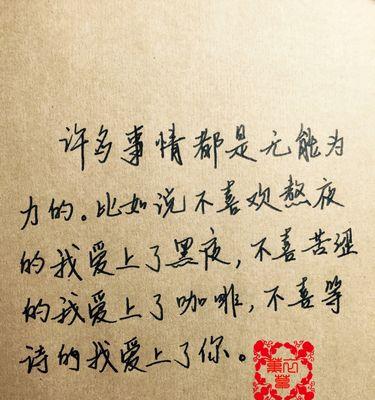 许多事情都是无能为
力的。比如说不喜欢熬夜
的我爱上了黑夜,不喜苦涩
的我爱上了咖啡,不喜等
待的我爱上了你。